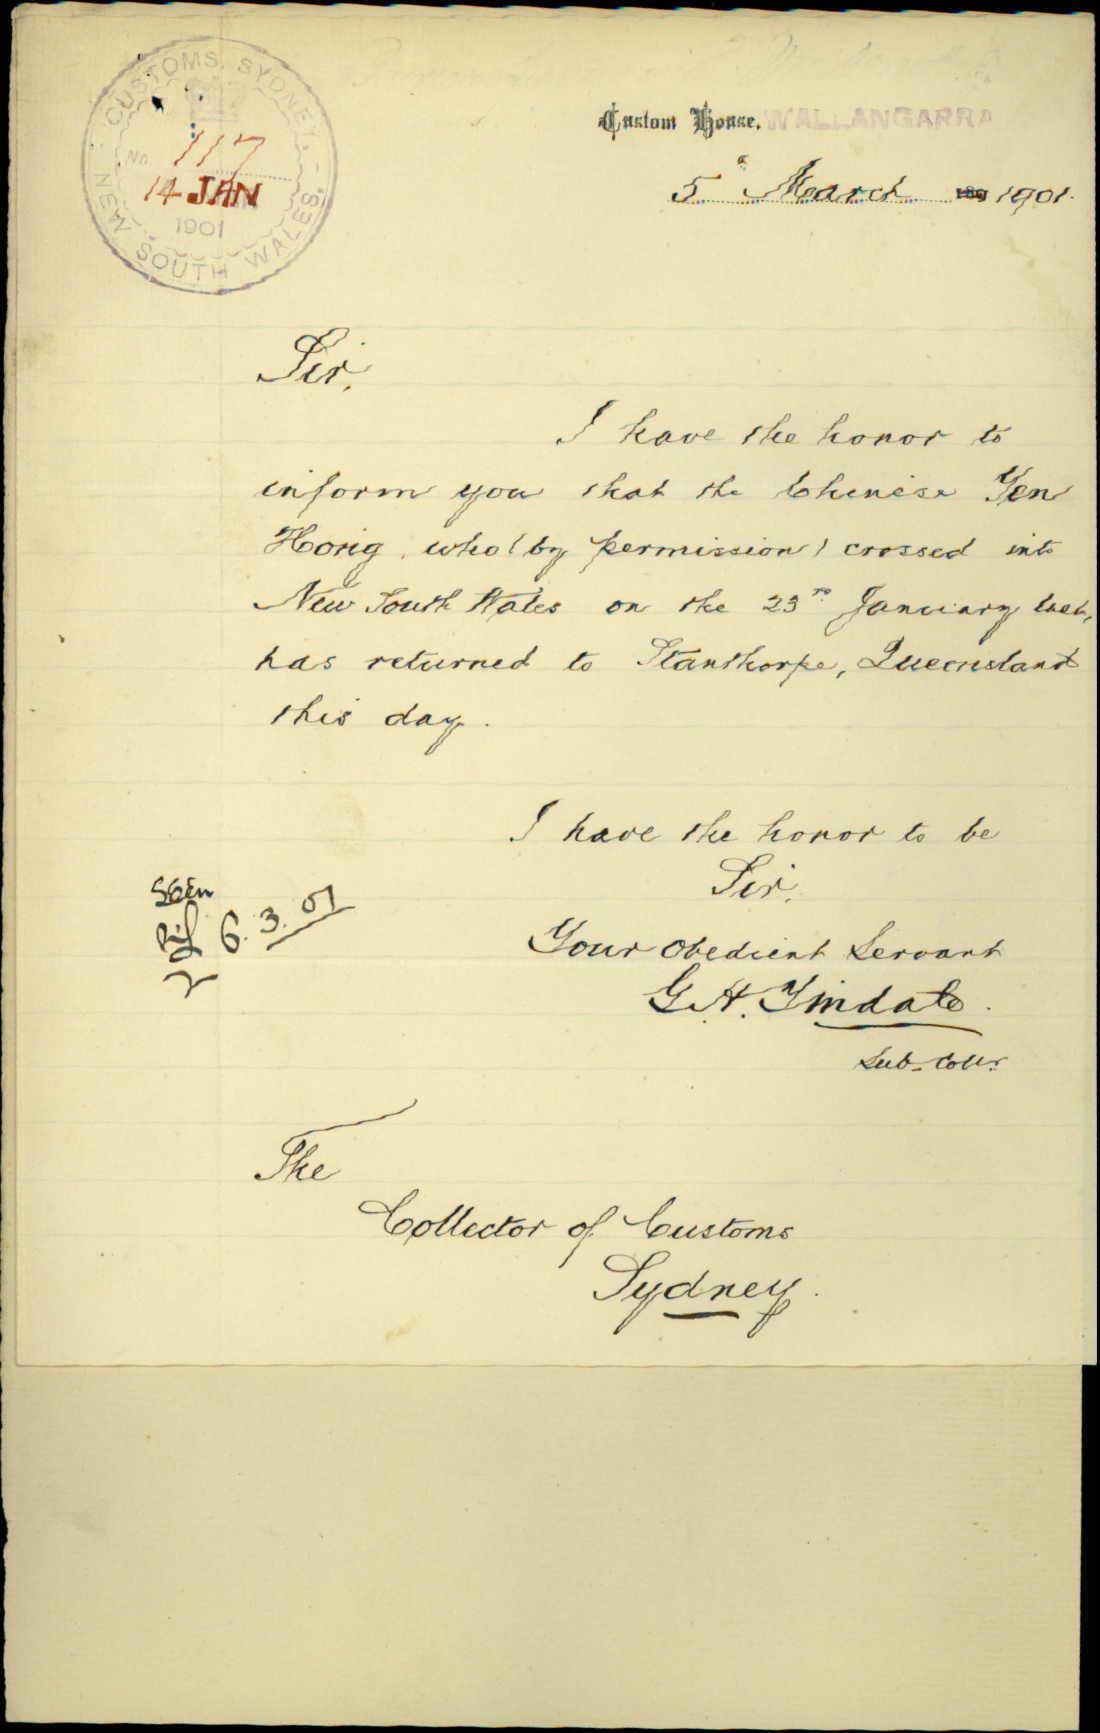 CUSTOMS, SYDNEY,
NEW SOUTH WALES.
No. 117
14 JAN
1901
Custom House, WALLANGARRA
5th March 189 1901.
Sir,
I have the honor to
inform you that the Chinese Yen
Hong, who (by permission) crossed into
New South Wales on the 23rd January last,
has returned to Stanthorpe, Queensland
this day.
I have the honor to be
Sir,
Your obedient Servant
G. H. Tindale.
Sub-Collr.
Seen
6.3.01
The
Collector of Customs
Sydney.